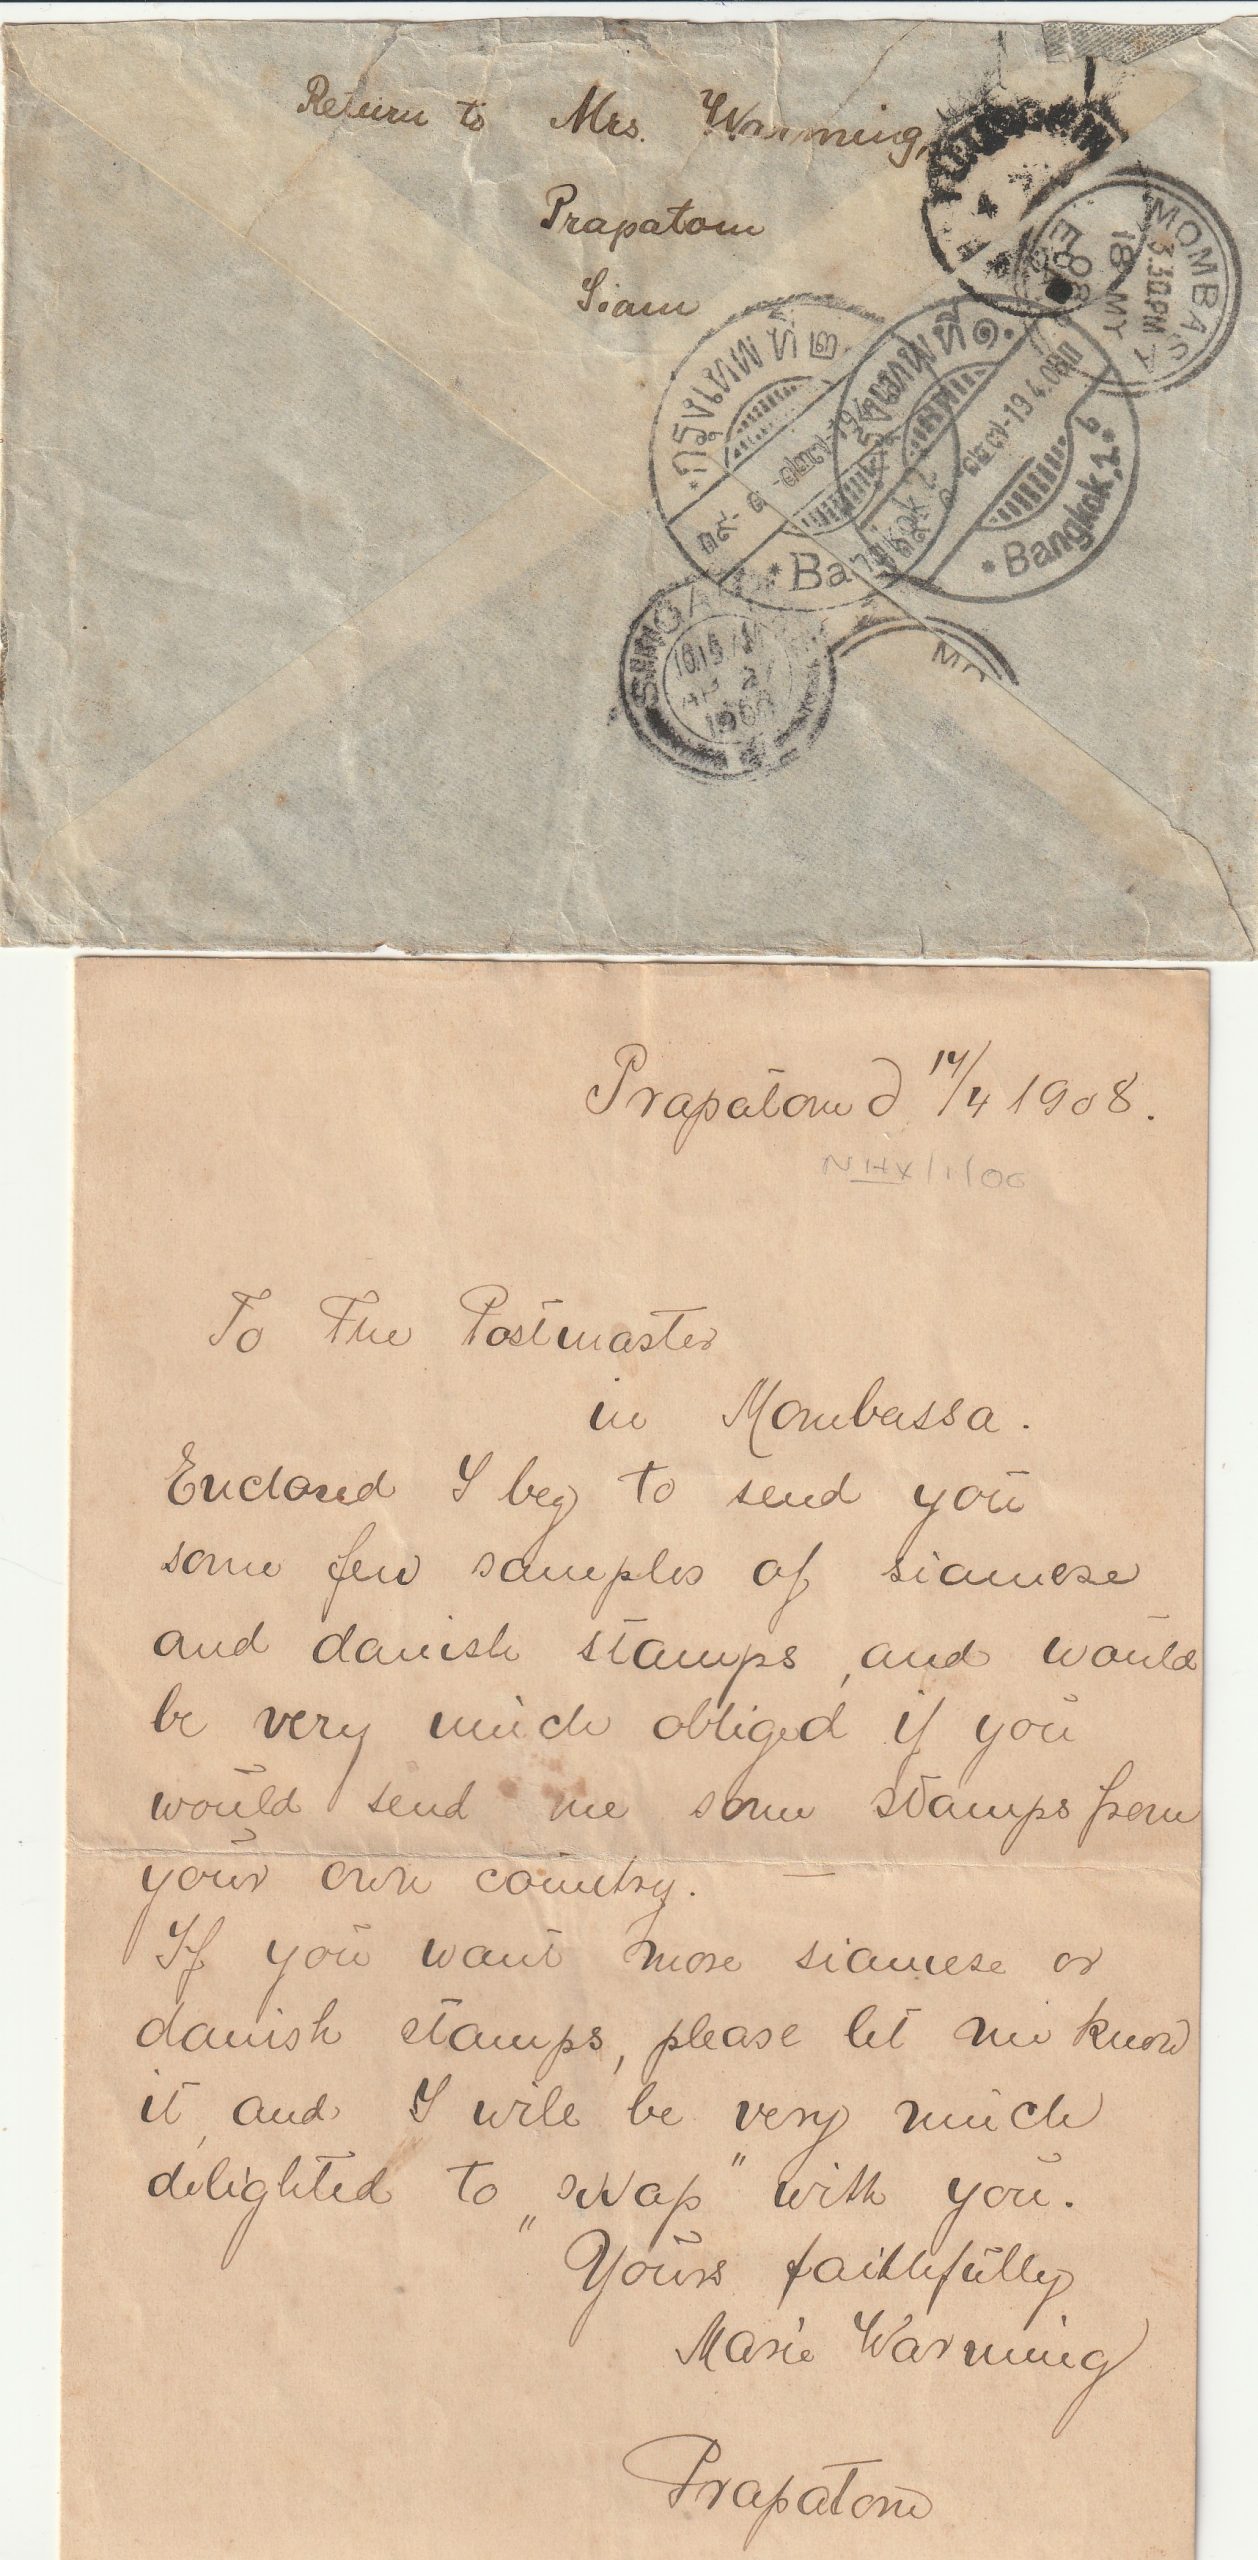 Return to Mrs. Warming,
Prapatom
Siam
MOMBASA
3.30PM
18 MY
08
กรุงเทพฯ ที่ ๒
Bangkok
-19 4.08
Bangkok, 1.
SINGA
1908
MO
Prapatom d 14/4 1908.
NHX/1/06
To The Postmaster
in Mombassa.
Enclosed I beg to send you
some few samples of siamese
and danish stamps, and would
be very much obliged if you
would send me some stamps from
your own country. —
If you want more siamese or
danish stamps, please let me know
it, and I will be very much
delighted to „swap" with you.
Yours faithfully
Marie Warming
Prapatom